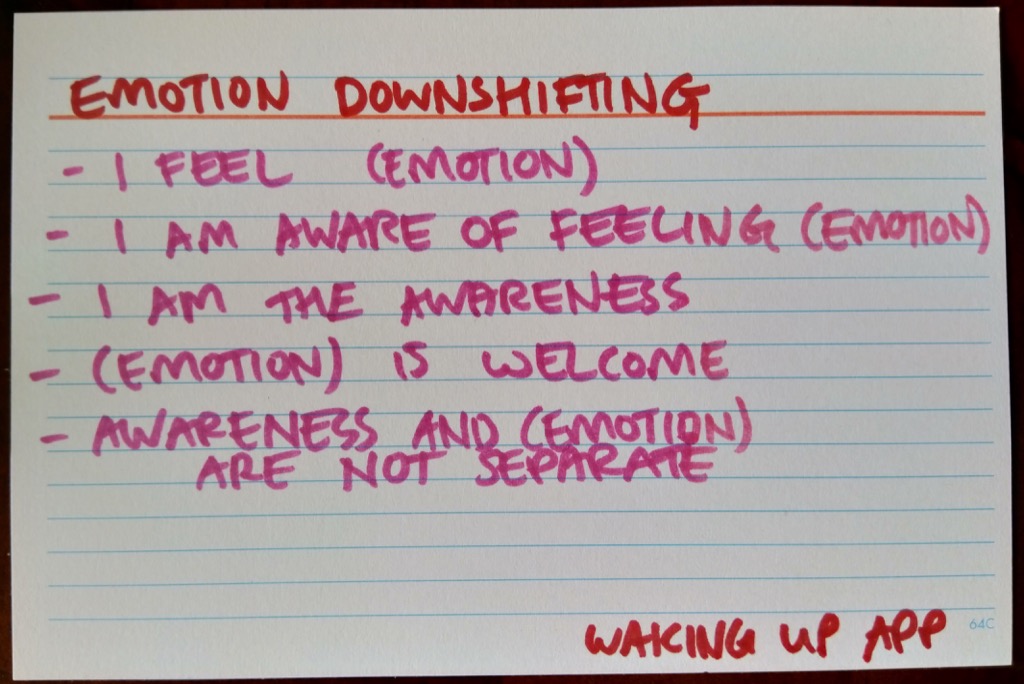 EMOTION DOWNSHIFTING
- I FEEL (EMOTION)
- I AM AWARE OF FEELING (EMOTION)
- I AM THE AWARENESS
- (EMOTION) IS WELCOME
- AWARENESS AND (EMOTION)
ARE NOT SEPARATE
WAKING UP APP
64C